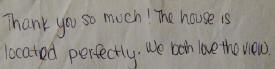 Thank you so much! The house is
located perfectly. We both love the view.